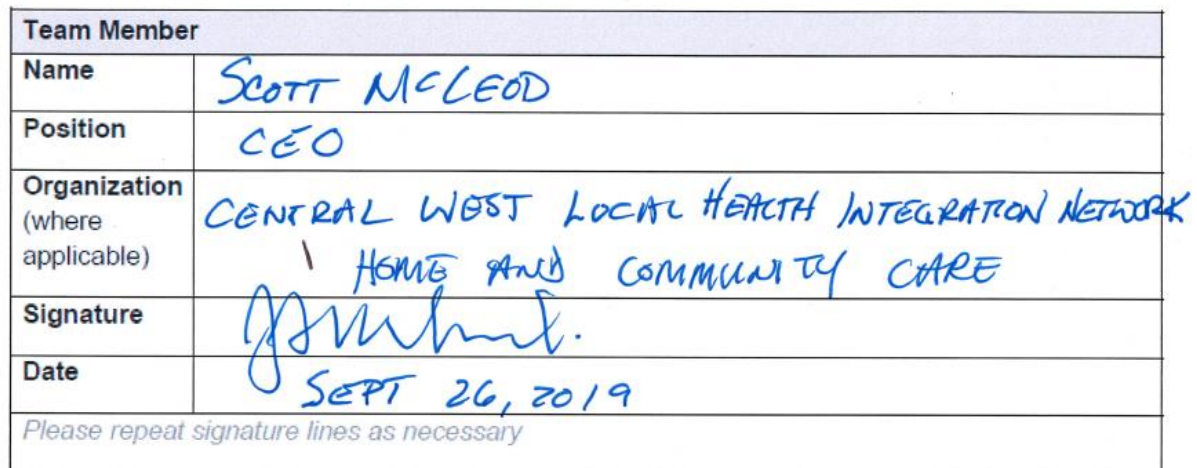 Team Member
Name SCOTT McLEOD
Position CEO
Organization
(where applicable) CENTRAL WEST LOCAL HEALTH INTEGRATION NETWORK
HOME AND COMMUNITY CARE
Signature
Date SEPT 26, 2019
Please repeat signature lines as necessary